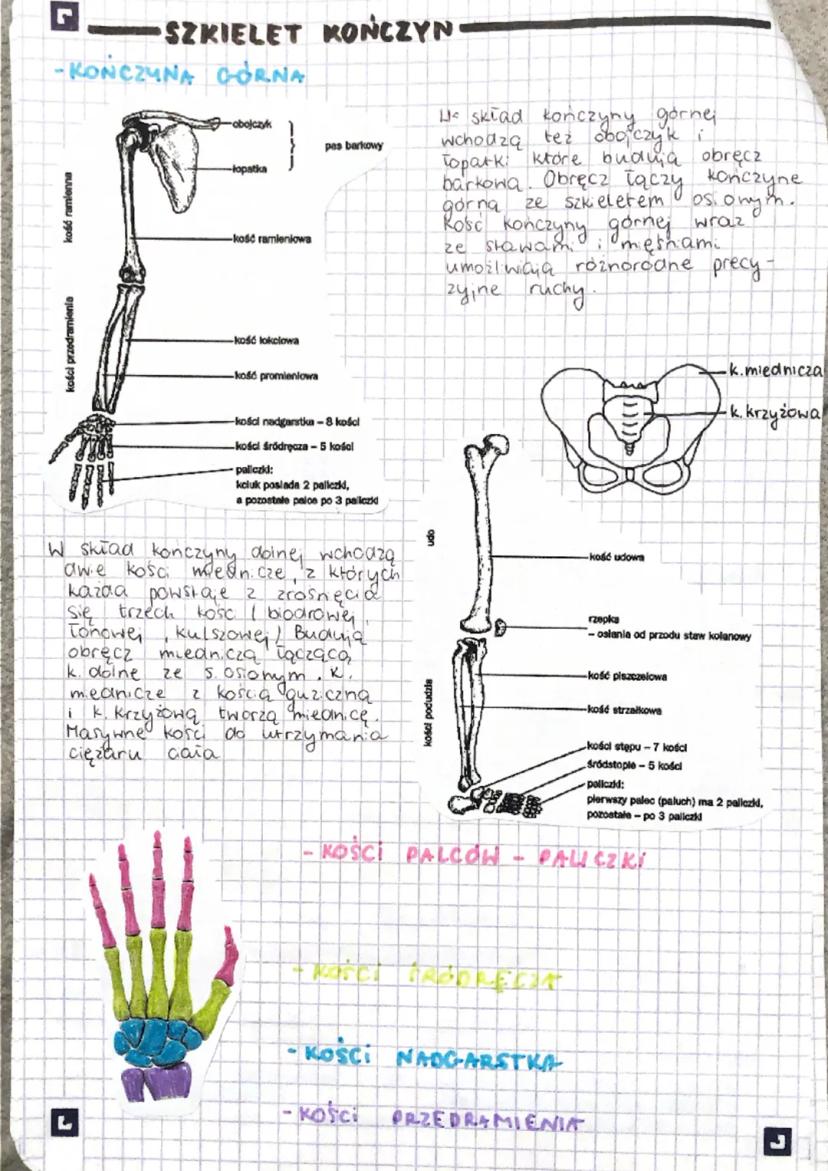 SZKIELET KOŃCZYN
- KOŃCZYNA GÓRNA
obojczyk
pas barkowy
łopatka
kość ramienna
kość ramieniowa
kości przedramienia
kość łokciowa
kość promieniowa
kości nadgarstka – 8 kości
kości śródręcza – 5 kości
paliczki:
kciuk posiada 2 paliczki,
a pozostałe palce po 3 paliczki
W skład kończyny górnej
wchodzą też obojczyk i
łopatki które budują obręcz
barkową. Obręcz łączy kończyne
górną ze szkieletem osionym.
Kość kończyny górnej wraz
ze stawami i mięśniami
umożliwiają różnorodne precy-
zyjne ruchy.
k. miednicza
k. krzyżowa
W skład kończyny dolnej wchodzą
dwie kości miednicze, z których
każda powstaje z zrośnięcia
się trzech kość ( biodrowej,
łonowej, kulszowej) Budują
obręcz miedniczą łączącą
k. dolne ze s. osionym. K.
miednicze z kością guziczną
i k. krzyżową tworzą miednicę.
Masywne kości do utrzymania
ciężaru ciała
udo
kość udowa
rzepka
– osłania od przodu staw kolanowy
kości podudzia
kość piszczelowa
kość strzałkowa
kości stępu – 7 kości
śródstopie – 5 kości
paliczki:
pierwszy palec (paluch) ma 2 paliczki,
pozostałe – po 3 paliczki
- KOŚCI PALCÓW - PALICZKI
- KOŚCI ŚRÓDRĘCZA
- KOŚCI NADGARSTKA
- KOŚCI PRZEDRAMIENIA